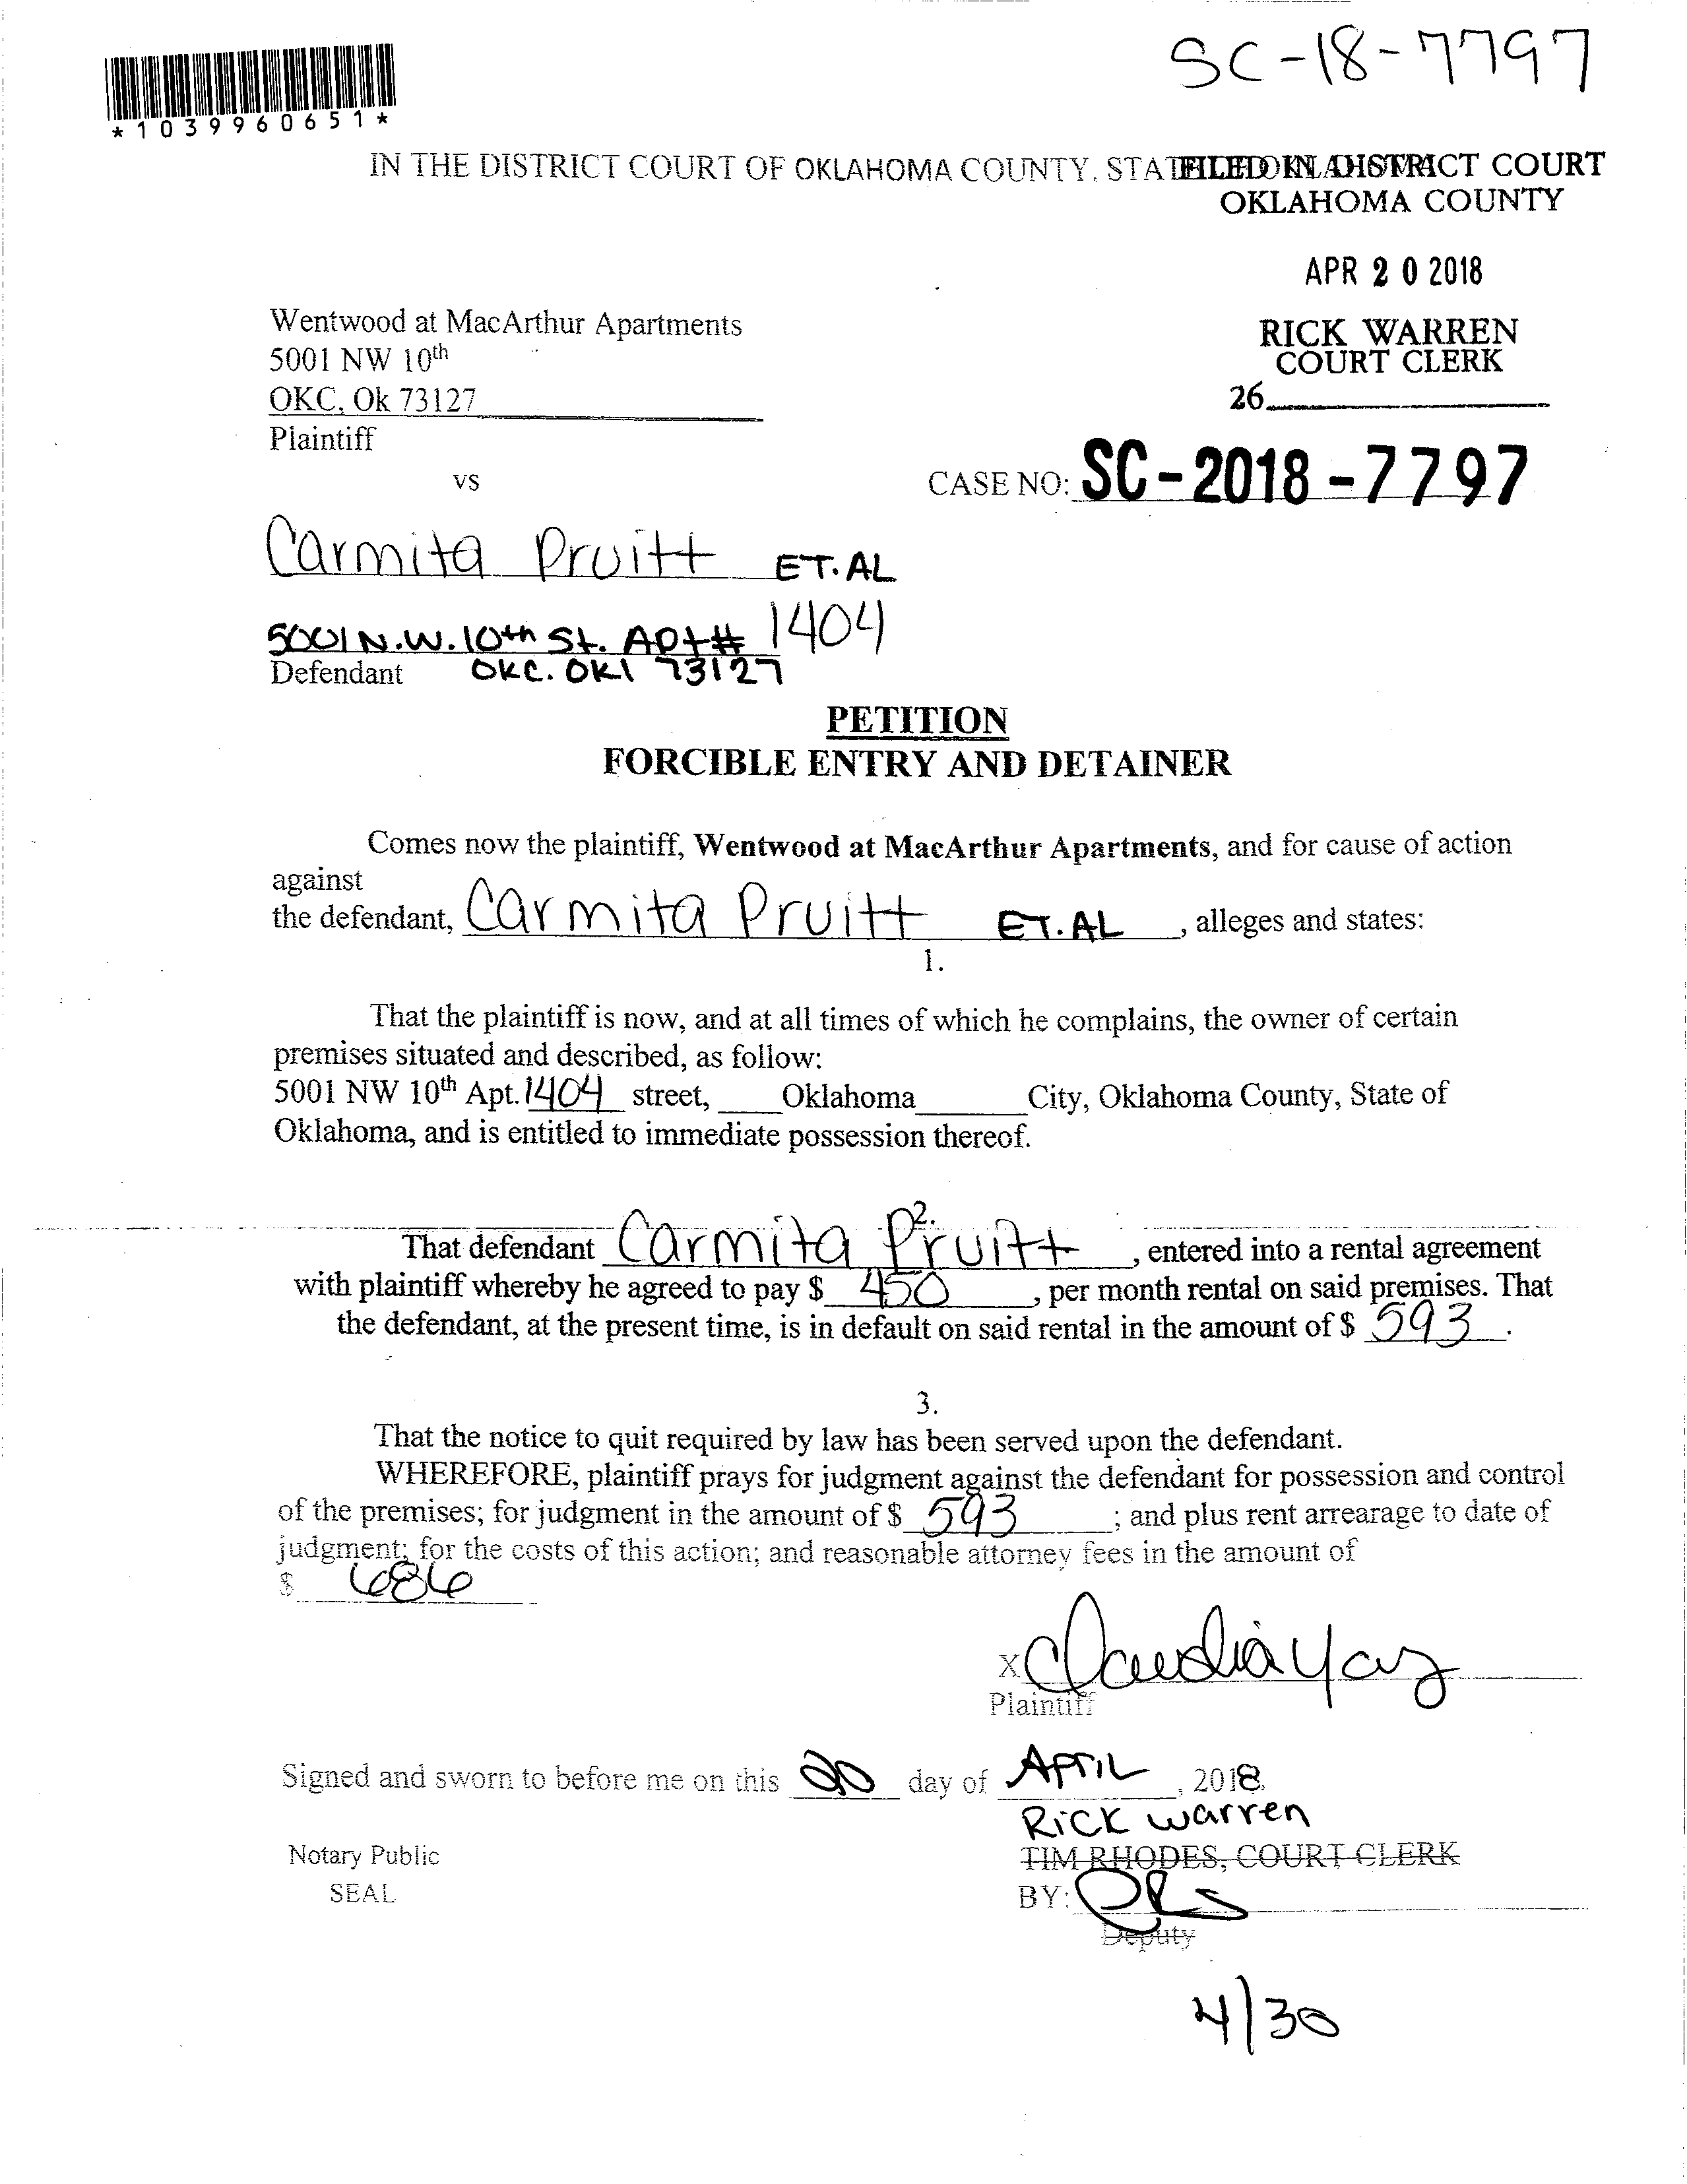 SC-18-7797
*1039960651*
IN THE DISTRICT COURT OF OKLAHOMA COUNTY, STATE
FILED IN DISTRICT COURT
OKLAHOMA COUNTY
APR 20 2018
Wentwood at MacArthur Apartments
RICK WARREN
5001 NW 10th
COURT CLERK
OKC, Ok 73127
26
Plaintiff
vs
CASE NO: SC-2018-7797
Carmita Pruitt ET.AL
5001 N.W. 10th St. Apt# 1404
Defendant OKC. OKl 73127
PETITION
FORCIBLE ENTRY AND DETAINER
Comes now the plaintiff, Wentwood at MacArthur Apartments, and for cause of action
against
the defendant, Carmita Pruitt ET.AL, alleges and states:
1.
That the plaintiff is now, and at all times of which he complains, the owner of certain
premises situated and described, as follow:
5001 NW 10th Apt. 1404 street, Oklahoma City, Oklahoma County, State of
Oklahoma, and is entitled to immediate possession thereof.
2.
That defendant Carmita Pruitt, entered into a rental agreement
with plaintiff whereby he agreed to pay $ 450, per month rental on said premises. That
the defendant, at the present time, is in default on said rental in the amount of $ 593.
3.
That the notice to quit required by law has been served upon the defendant.
WHEREFORE, plaintiff prays for judgment against the defendant for possession and control
of the premises; for judgment in the amount of $ 593; and plus rent arrearage to date of
judgment; for the costs of this action; and reasonable attorney fees in the amount of
$ 686
X Claudia
Plaintiff
Signed and sworn to before me on this 20 day of APriL, 2018.
Rick warren
Notary Public
TIM RHODES, COURT CLERK
SEAL
BY:
Deputy
4/30